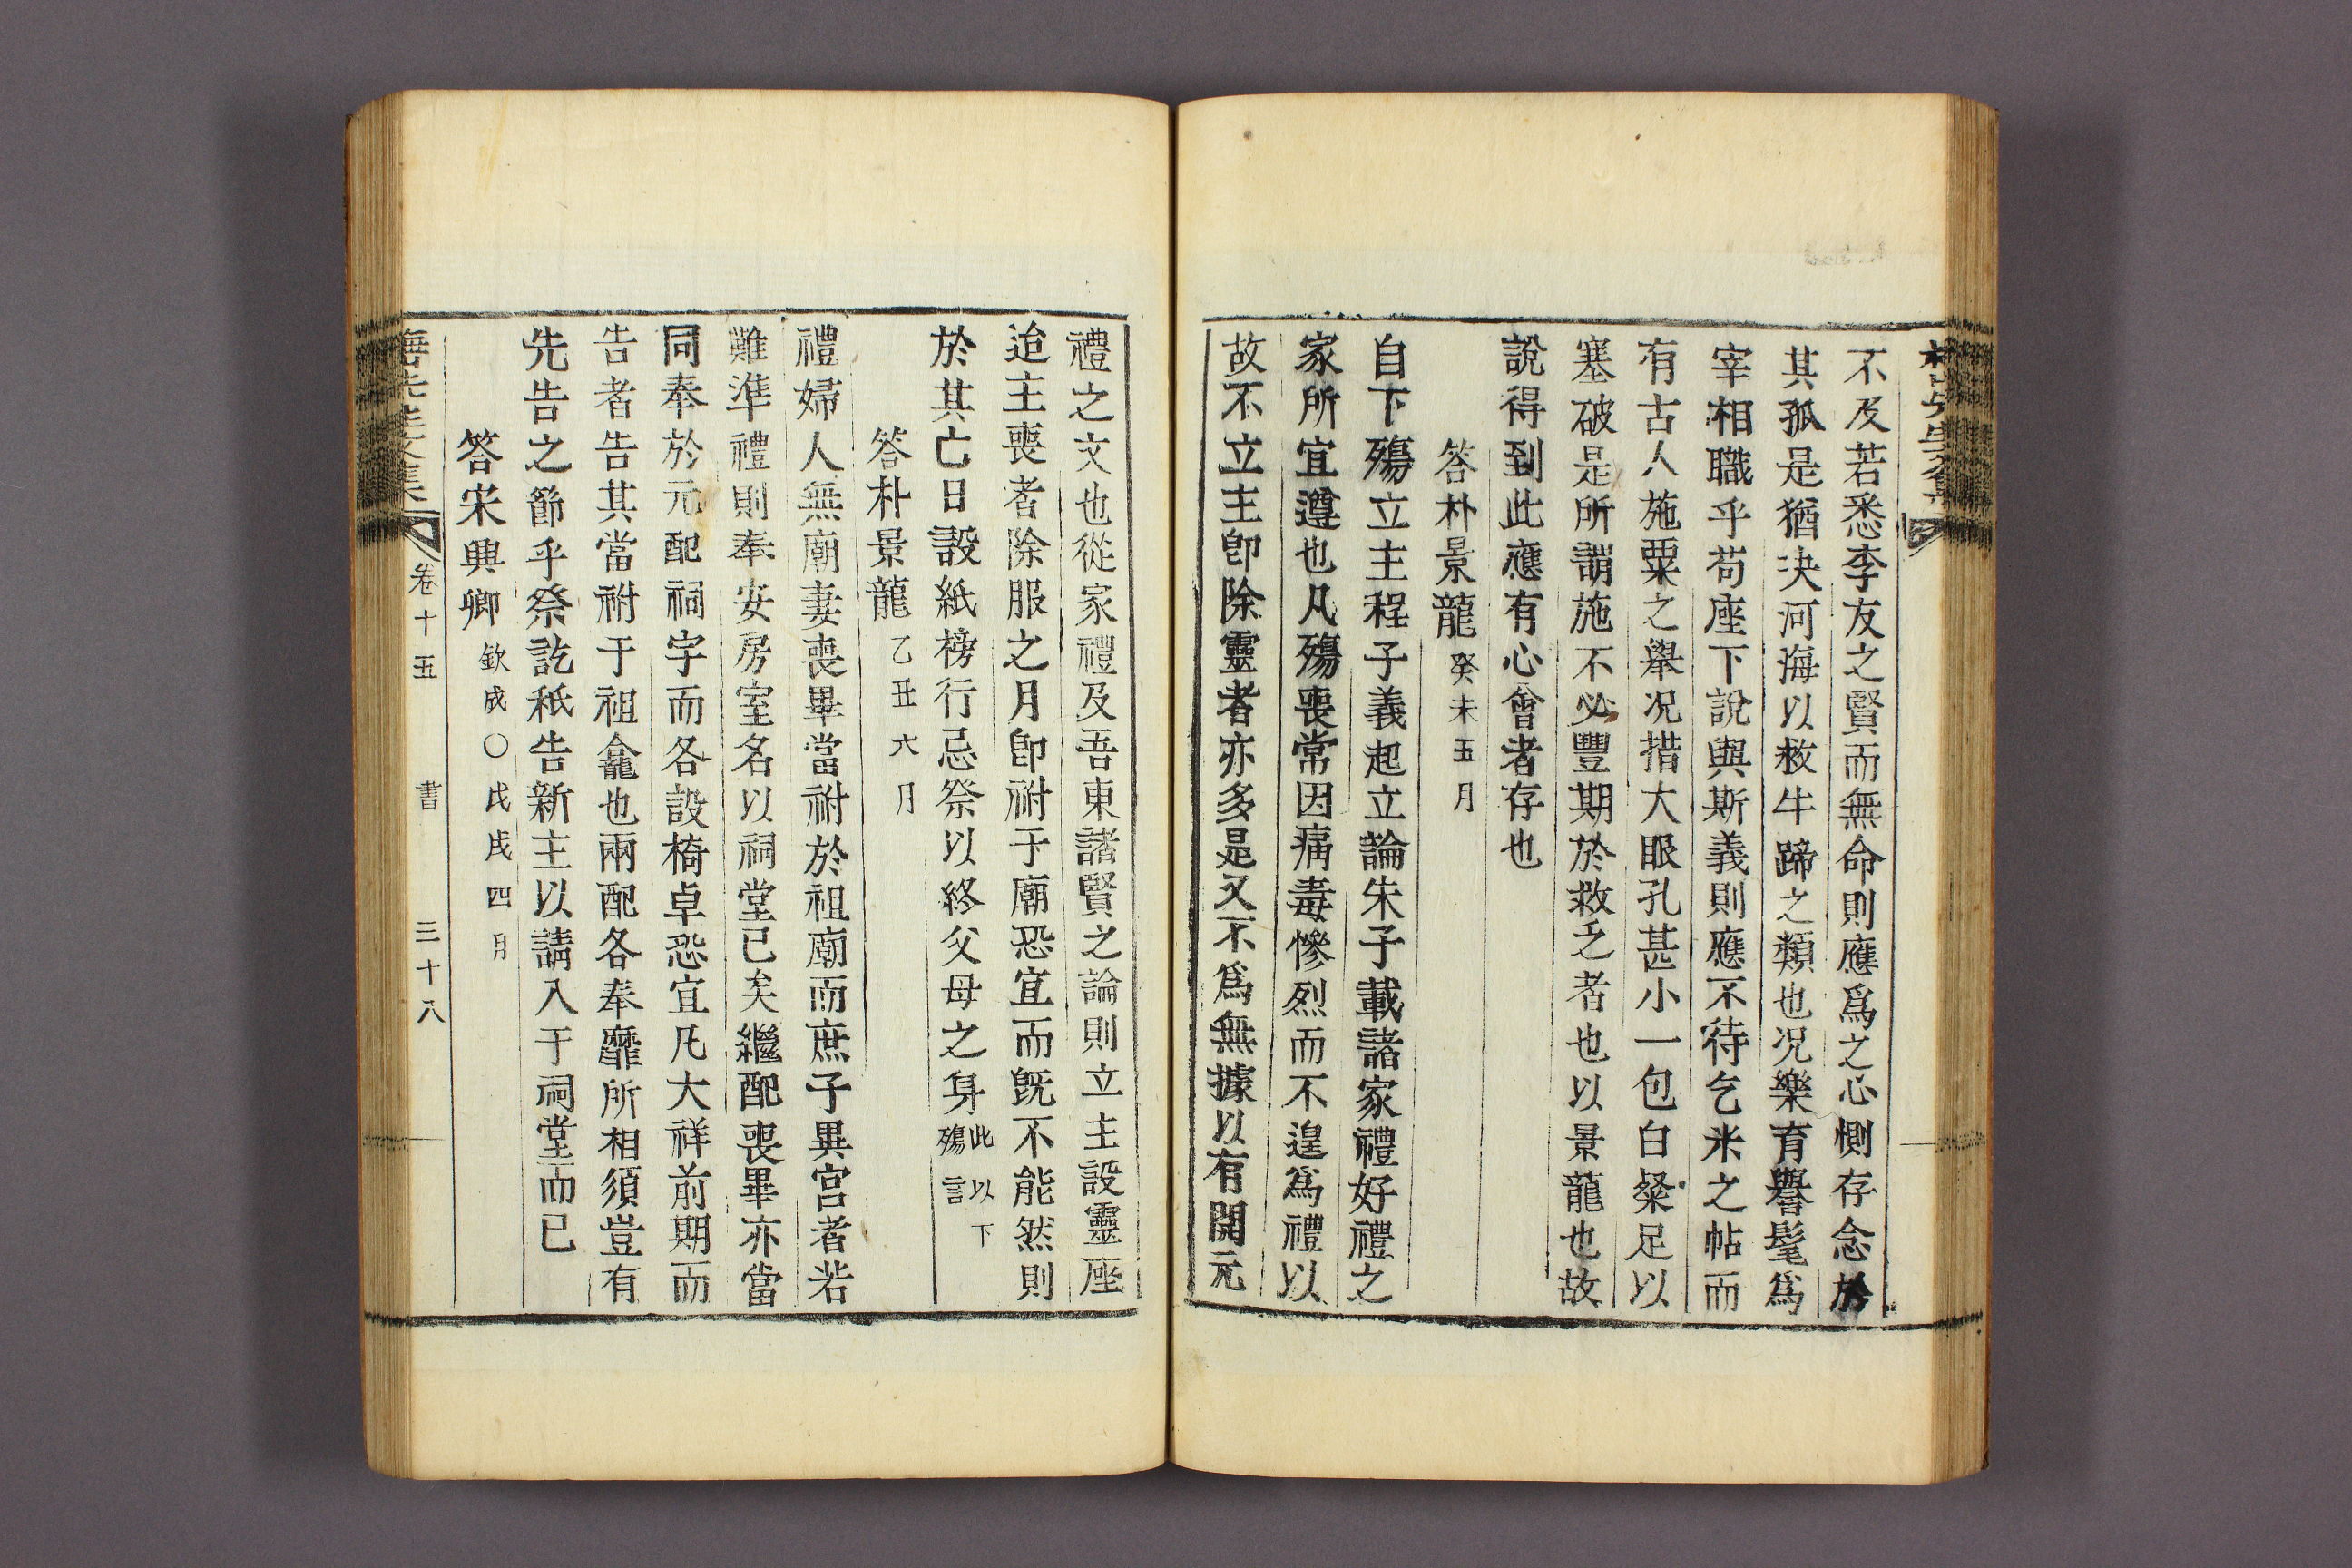 不及若悉李友之賢而無命則應爲之心惻存念於
其孤是猶决河海以救牛蹄之類也况樂育譽髦爲
宰相職乎苟座下說與斯義則應不待乞米之帖而
有古人施粟之舉况措大眼孔甚小一包白粲足以
塞破是所謂施不必豐期於救乏者也以景龍也故
說得到此應有心會者存也
答朴景龍 癸未五月
自下殤立主程子義起立論朱子載諸家禮好禮之
家所宜遵也凡殤喪常因痛毒慘烈而不遑爲禮以
故不立主卽除靈者亦多是又不爲無據以有開元
禮之文也從家禮及吾東諸賢之論則立主設靈座
迨主喪者除服之月卽祔于廟恐宜而旣不能然則
於其亡日設紙榜行忌祭以終父母之身 此以下殤言
答朴景龍 乙丑六月
禮婦人無廟妻喪畢當祔於祖廟而庶子異宮者若
難準禮則奉安房室名以祠堂已矣繼配喪畢亦當
同奉於元配祠宇而各設椅卓恐宜凡大祥前期而
告者告其當祔于祖龕也兩配各奉靡所相須豈有
先告之節乎祭訖秪告新主以請入于祠堂而已
答宋興卿 欽成○戊戌四月
先生文集 卷十五 書 三十八